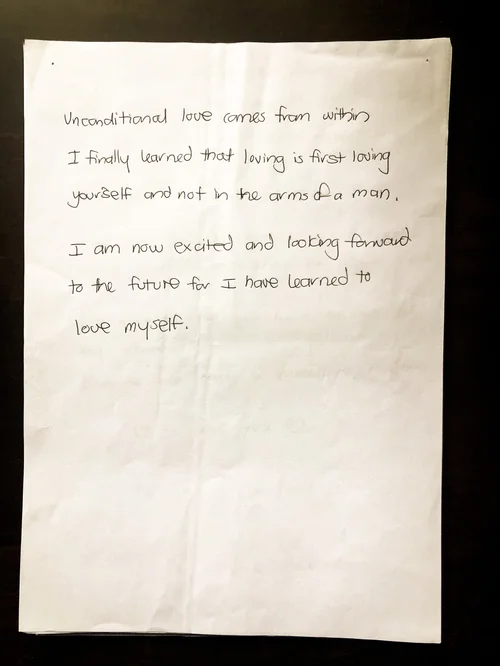 Unconditional love comes from within
I finally learned that loving is first loving
yourself and not in the arms of a man.
I am now excited and looking forward
to the future for I have learned to
love myself.